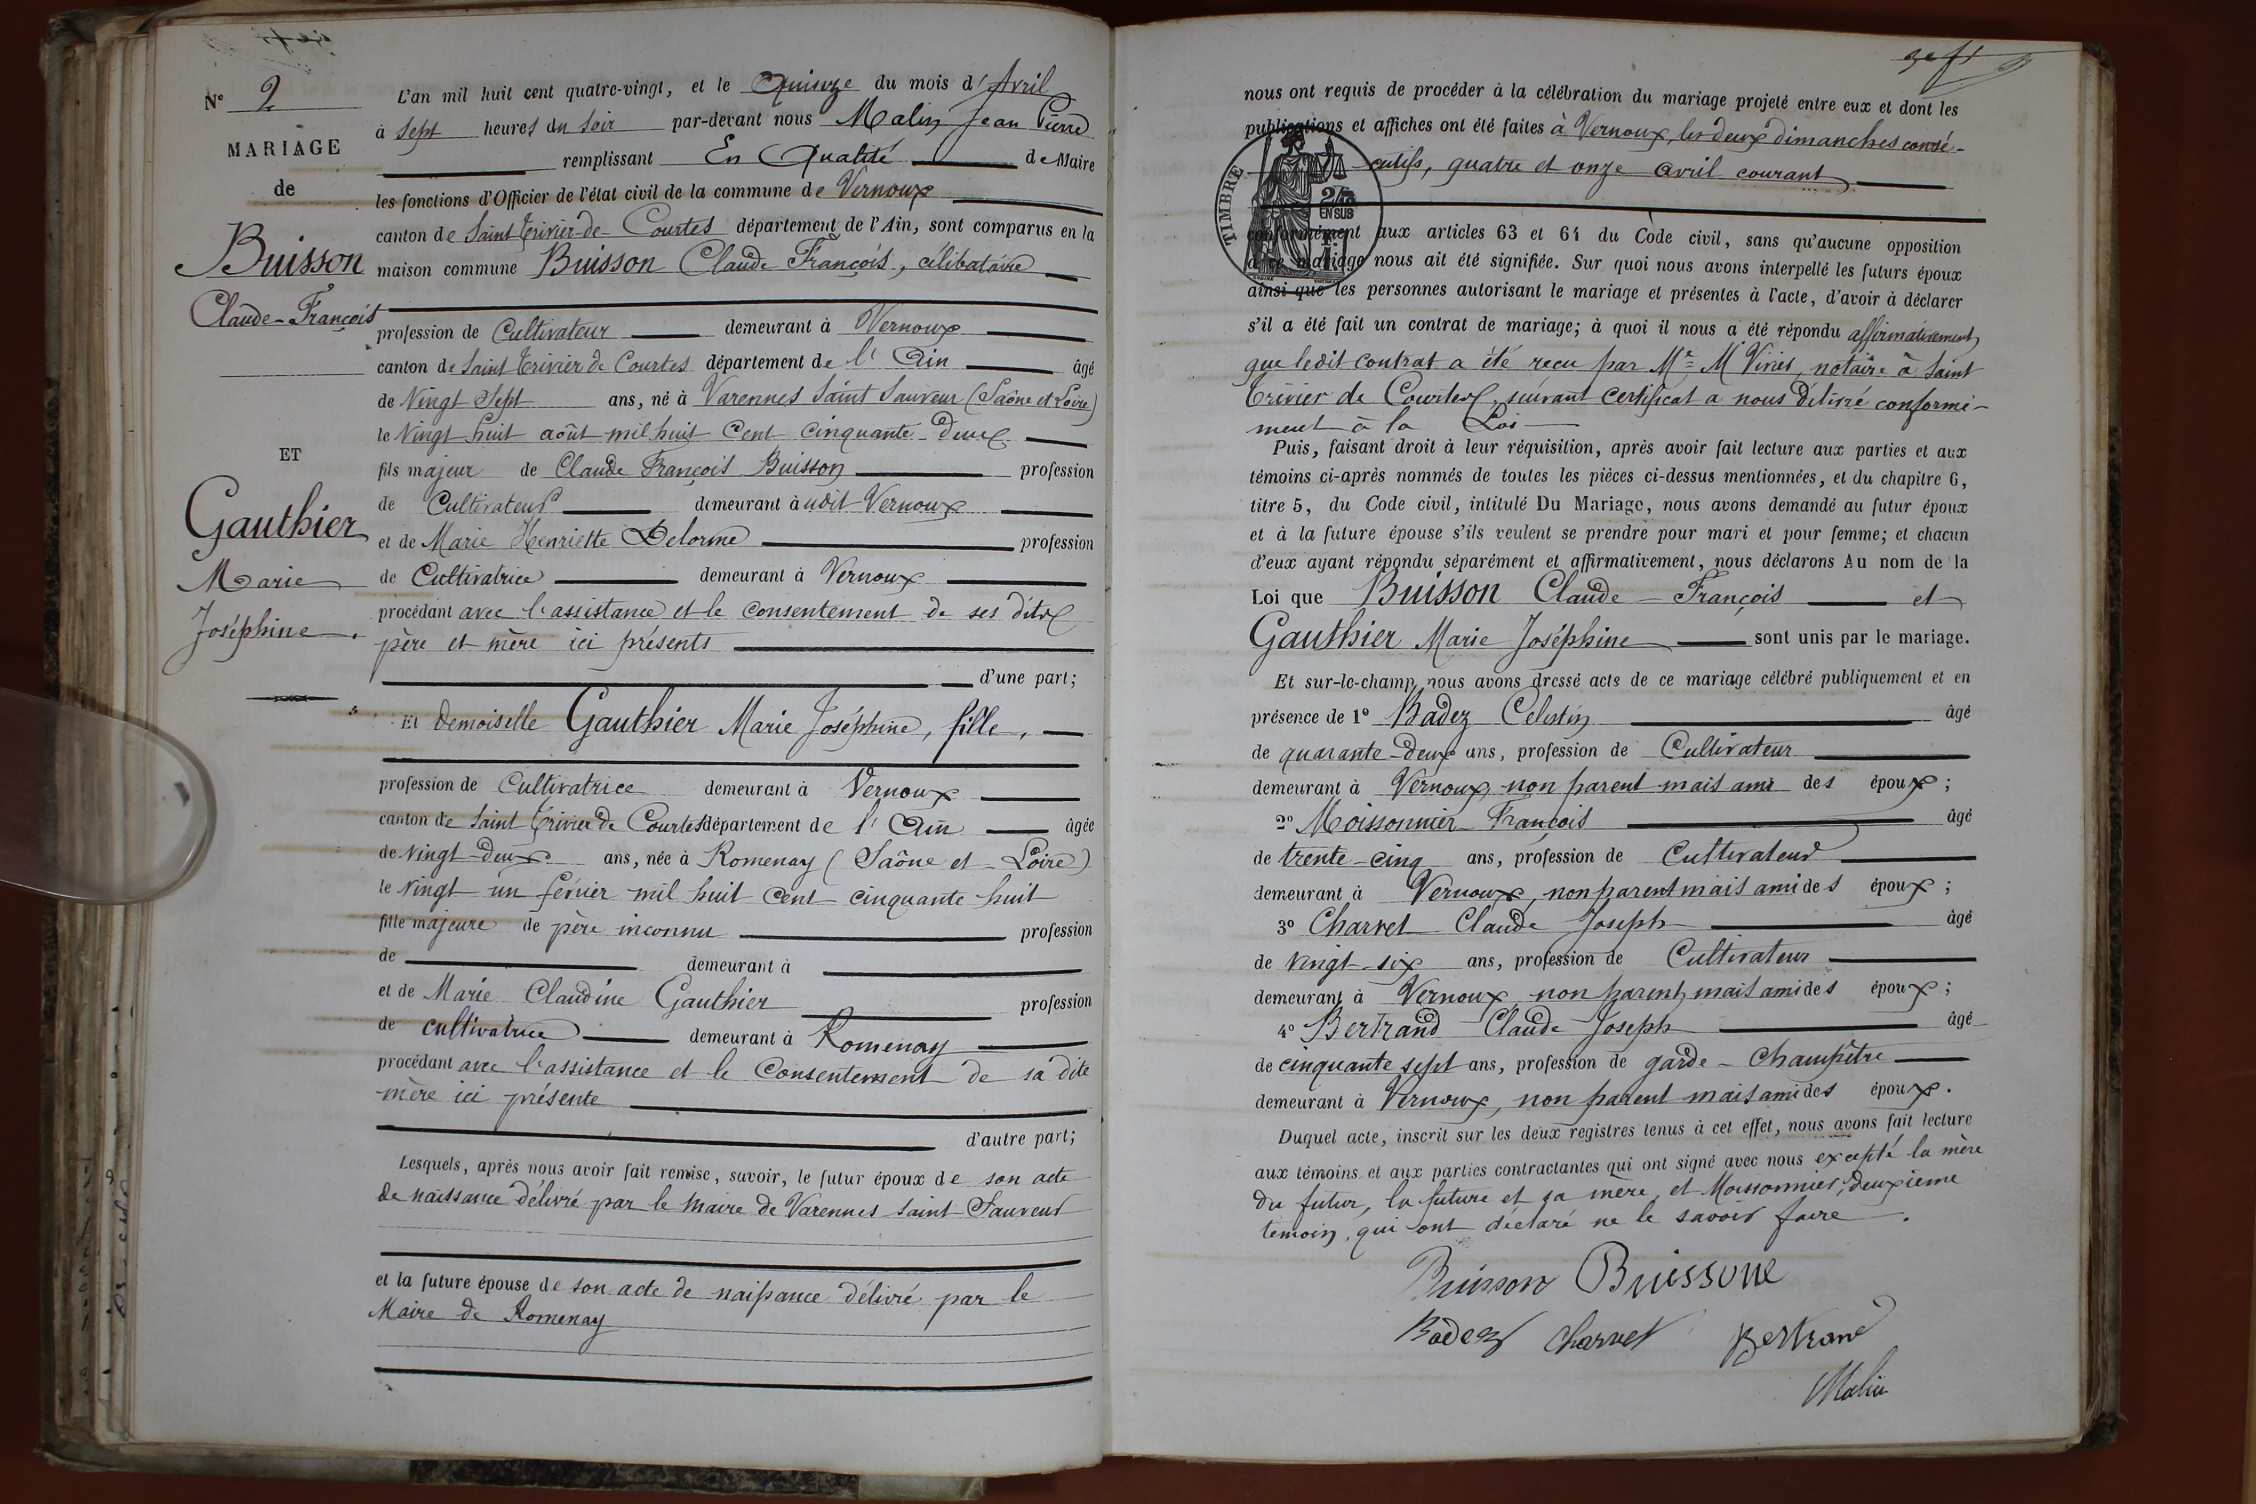 N° 2
MARIAGE
de
Buisson
Claude-François
ET
Gauthier
Marie
Joséphine.
L'an mil huit cent quatre-vingt, et le Quinze du mois d'Avril
à Sept heures du soir par-devant nous Malin Jean Pierre
remplissant En Qualité de Maire
les fonctions d'Officier de l'état civil de la commune de Vernoux
canton de Saint Trivier-de-Courtes département de l'Ain, sont comparus en la
maison commune Buisson Claude François, célibataire
profession de Cultivateur demeurant à Vernoux
canton de Saint Trivier de Courtes département de l'Ain âgé
de Vingt Sept ans, né à Varennes Saint Sauveur (Saône et Loire)
le Vingt huit août mil huit Cent cinquante Deux
fils majeur de Claude François Buisson profession
de Cultivateur demeurant à udit Vernoux
et de Marie Henriette Delorme profession
de Cultivatrice demeurant à Vernoux
procédant avec l'assistance et le consentement de ses dits
père et mère ici présents
d'une part;
Et demoiselle Gauthier Marie Joséphine, fille,
profession de Cultivatrice demeurant à Vernoux
canton de Saint Trivier de Courtes département de l'Ain âgée
de vingt-deux ans, née à Romenay (Saône et Loire)
le vingt un février mil huit Cent cinquante huit
fille majeure de père inconnu profession
de demeurant à
et de Marie Claudine Gauthier profession
de cultivatrice demeurant à Romenay
procédant avec l'assistance et le Consentement de sa dite
mère ici présente
d'autre part;
Lesquels, après nous avoir fait remise, savoir, le futur époux de son acte
de naissance délivré par le Maire de Varennes Saint Sauveur
et la future épouse de son acte de naissance délivré par le
Maire de Romenay
nous ont requis de procéder à la célébration du mariage projeté entre eux et dont les
publications et affiches ont été faites à Vernoux, les deux dimanches consé-
cutifs, quatre et onze avril courant
TIMBRE
2/10
EN SUS
conformément aux articles 63 et 64 du Code civil, sans qu'aucune opposition
à ce mariage nous ait été signifiée. Sur quoi nous avons interpellé les futurs époux
ainsi que les personnes autorisant le mariage et présentes à l'acte, d'avoir à déclarer
s'il a été fait un contrat de mariage; à quoi il nous a été répondu affirmativement
que ledit contrat a été reçu par Me notaire à Saint
Trivier de Courtes, suivant certificat a nous délivré conformé-
ment à la Loi
Puis, faisant droit à leur réquisition, après avoir fait lecture aux parties et aux
témoins ci-après nommés de toutes les pièces ci-dessus mentionnées, et du chapitre 6,
titre 5, du Code civil, intitulé Du Mariage, nous avons demandé au futur époux
et à la future épouse s'ils veulent se prendre pour mari et pour femme; et chacun
d'eux ayant répondu séparément et affirmativement, nous déclarons Au nom de la
Loi que Buisson Claude-François et
Gauthier Marie Joséphine sont unis par le mariage.
Et sur-le-champ nous avons dressé acte de ce mariage célébré publiquement et en
présence de 1° Badez Celestin âgé
de quarante-Deux ans, profession de Cultivateur
demeurant à Vernoux, non parent mais ami des époux;
2° Moissonnier François âgé
de trente-cinq ans, profession de Cultivateur
demeurant à Vernoux, non parent mais ami des époux;
3° Charvet Claude Joseph âgé
de vingt-six ans, profession de Cultivateur
demeurant à Vernoux, non parent, mais ami des époux;
4° Bertrand Claude Joseph âgé
de cinquante sept ans, profession de garde-Champêtre
demeurant à Vernoux, non parent mais ami des époux.
Duquel acte, inscrit sur les deux registres tenus à cet effet, nous avons fait lecture
aux témoins et aux parties contractantes qui ont signé avec nous excepté la mère
du futur, la future et sa mère, et Moissonnier, deuxième
témoin, qui ont déclaré ne le savoir faire.
Buisson Buissone
Badez Charvet Bertrand
Malin